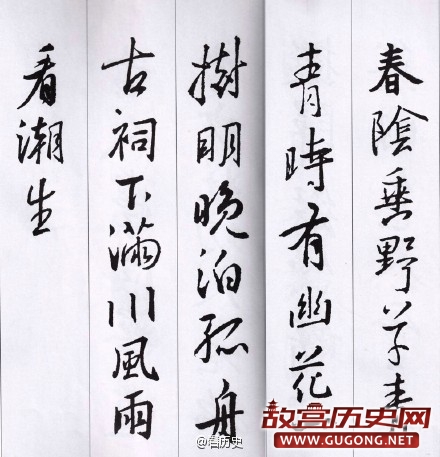 春陰垂野草青
青時有幽花
樹明晚泊孤舟
古祠下滿川風雨
看潮生
@看历史
故宫历史网
WWW.GUGONG.NET